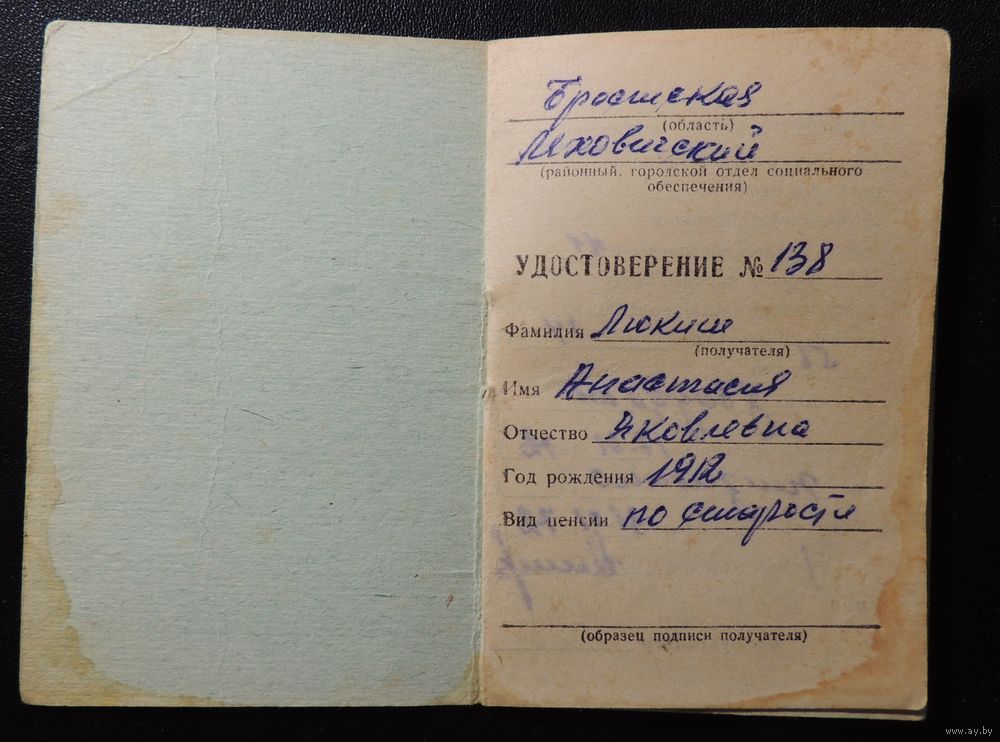 Брестская
(область)
Ляховичский
(районный, городской отдел социального
обеспечения)
УДОСТОВЕРЕНИЕ № 138
Фамилия
(получателя)
Имя Анастасия
Отчество Яковлевна
Год рождения 1912
Вид пенсии по старости
(образец подписи получателя)
www.ay.by